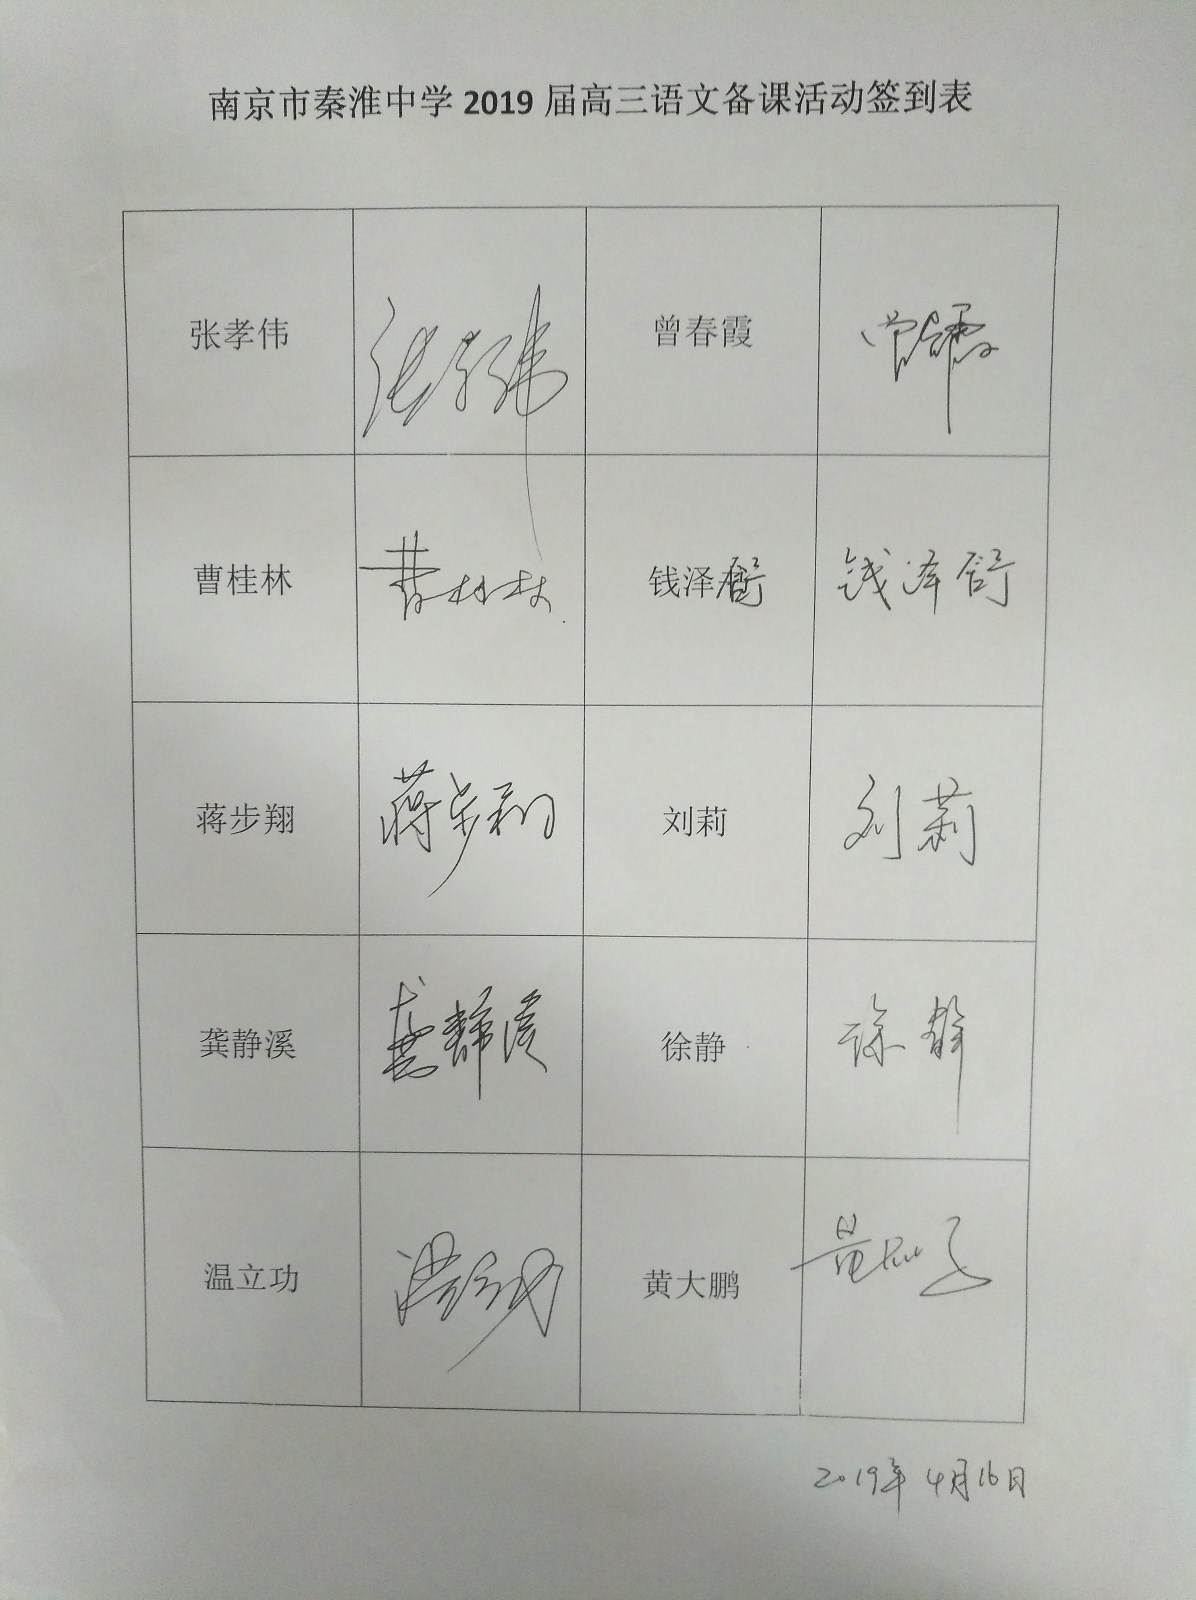 南京市秦淮中学 2019 届高三语文备课活动签到表
张孝伟 张孝伟 曾春霞 曾春霞
曹桂林 曹桂林 钱泽舒 钱泽舒
蒋步翔 蒋步翔 刘莉 刘莉
龚静溪 龚静溪 徐静 徐静
温立功 温立功 黄大鹏 黄大鹏
2019年4月16日